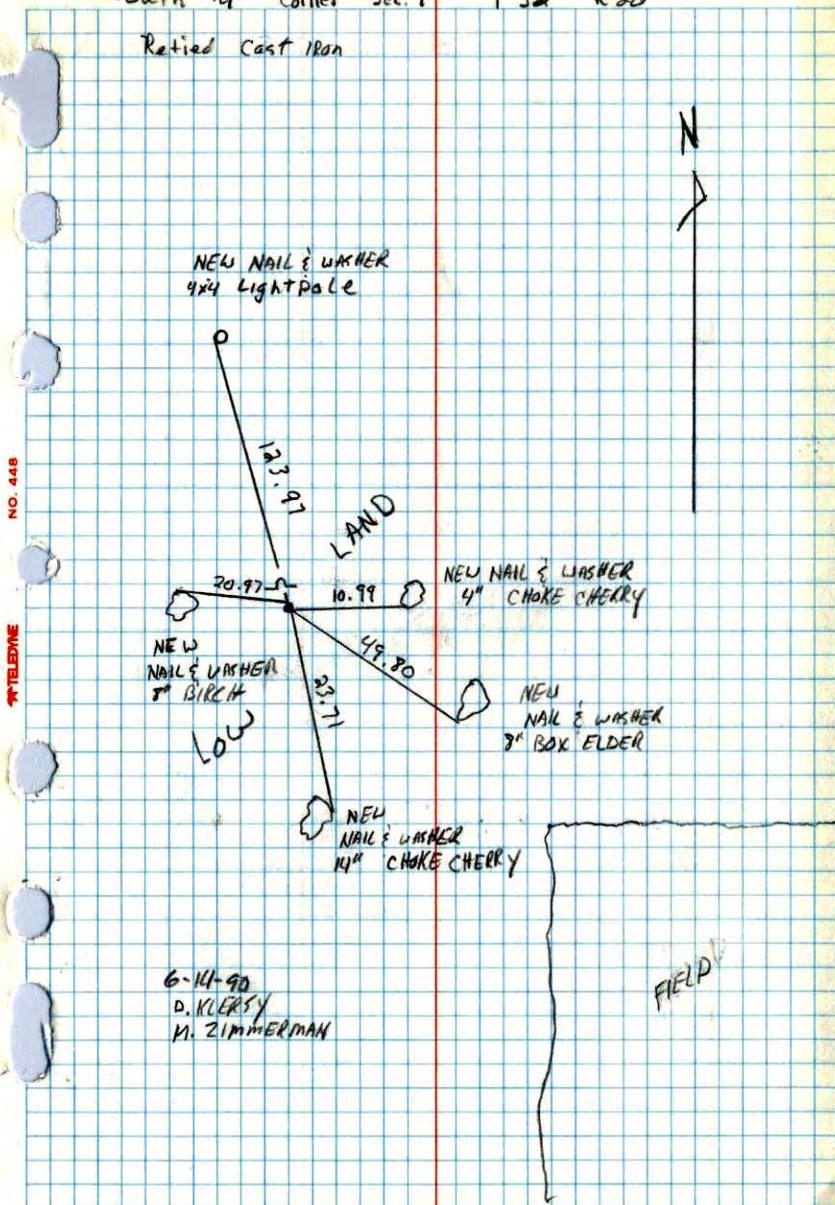 Corner Sec.
Retied Cast Iron
N
NEW NAIL & WASHER
4x4 Lightpole
123.97
LAND
20.97
10.99
NEW NAIL & WASHER
4" CHOKE CHERRY
NEW
NAIL & WASHER
8" BIRCH
49.80
23.71
NEW
NAIL & WASHER
8" BOX ELDER
LOW
NEW
NAIL & WASHER
14" CHOKE CHERRY
FIELD
6-14-90
D. KLERSY
M. ZIMMERMAN
NO. 448
TELEDYNE